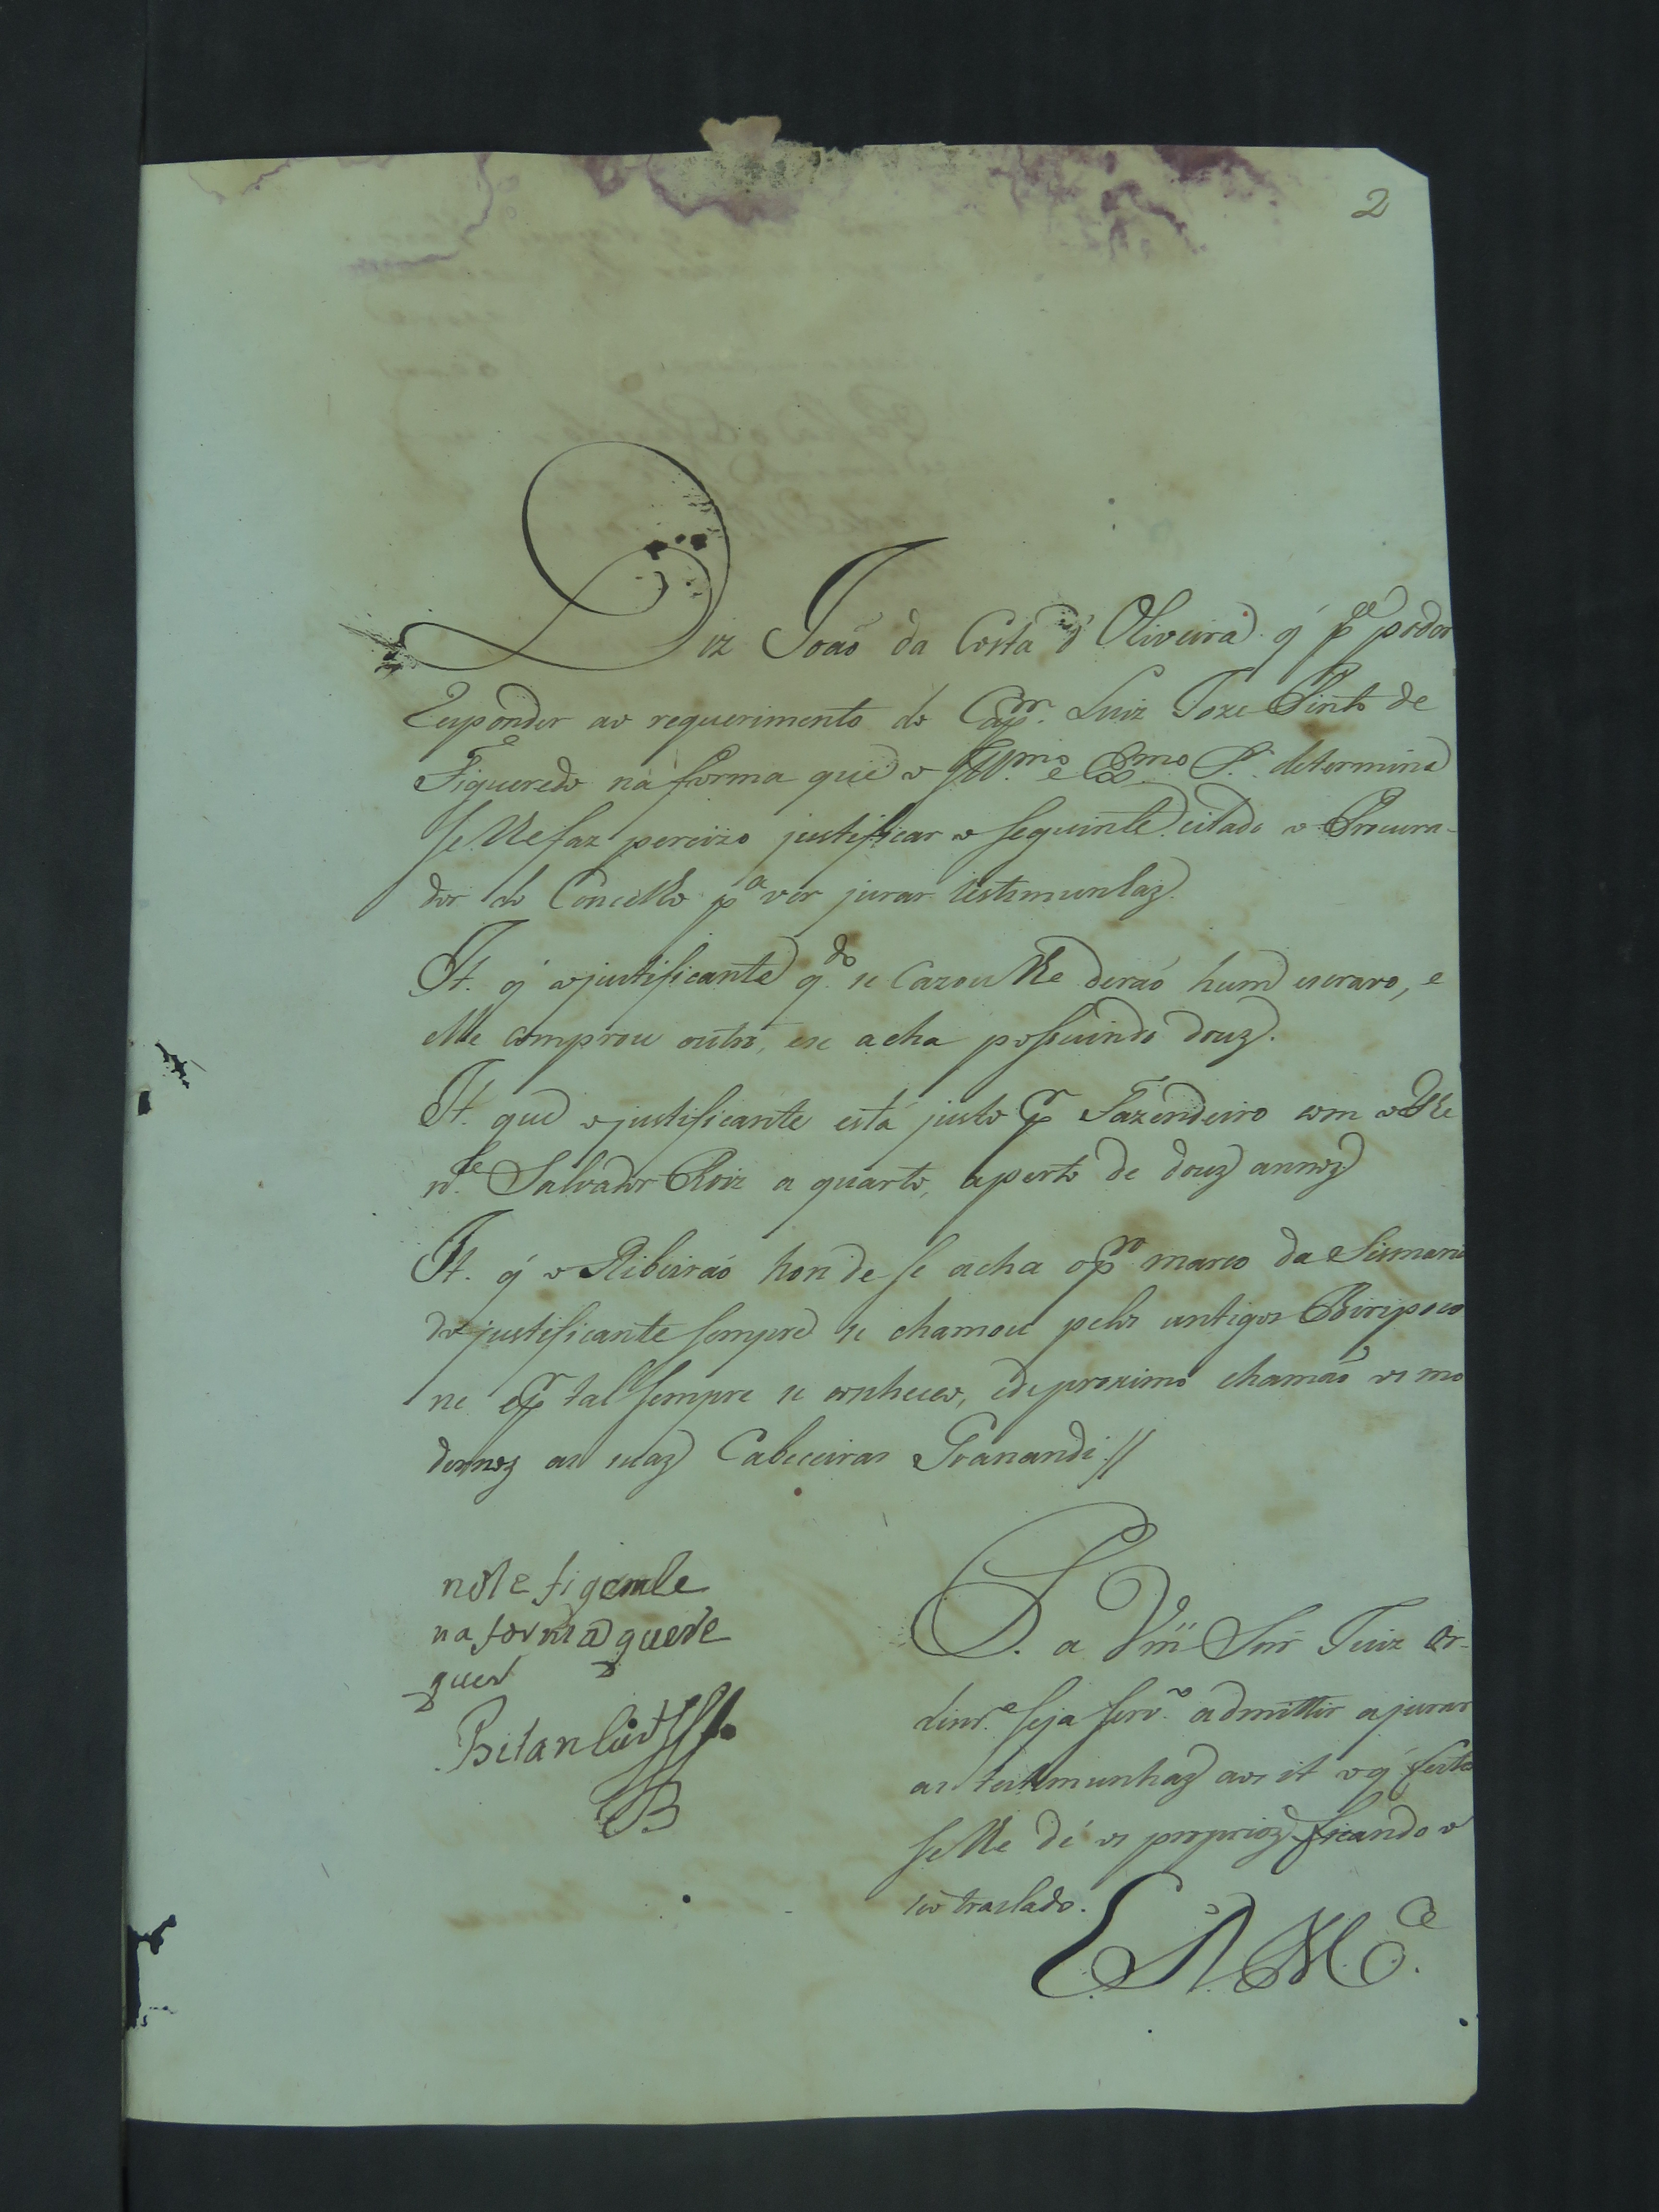 2
Diz João da Costa d' Oliveira q' p.ª podor
Responder ao requerimento do Capp.m Luiz Joze Pinto de
Figueredo na forma que o Ill.mo e Ex.mo S.r determina
se lhe faz percizo justificar o seguinte citado o Procura-
dor do Concelho p.a ver jurar testimunhaz.
It. q' o justificante q.do se Cazou lhe derão hum escravo, e
elle comprou outro, e se acha possuindo douz.
It. que o justificante está justo p.r Fazendeiro com o The
n.te Salvador Roiz a quarto, a perto de douz annoz
It. q' o Ribeirão honde se acha o p.ro marco da Sismari
do justificante sempre se chamou pelos antigos Boiripoco
ne e p.r tal sempre se conheceo, e de proximo chamão os mo
dernoz as suaz Cabeceiras Tranandi //
notefiqemle
na forma quere
quer
Betanlud
P. a Vm Snr Juiz Or-
dinr.o seja serv.o admittir a jurar
as testimunhaz aos it o q' feito
se lhe dê os proprioz ficando o
seo traslado.
E. R. M.ce